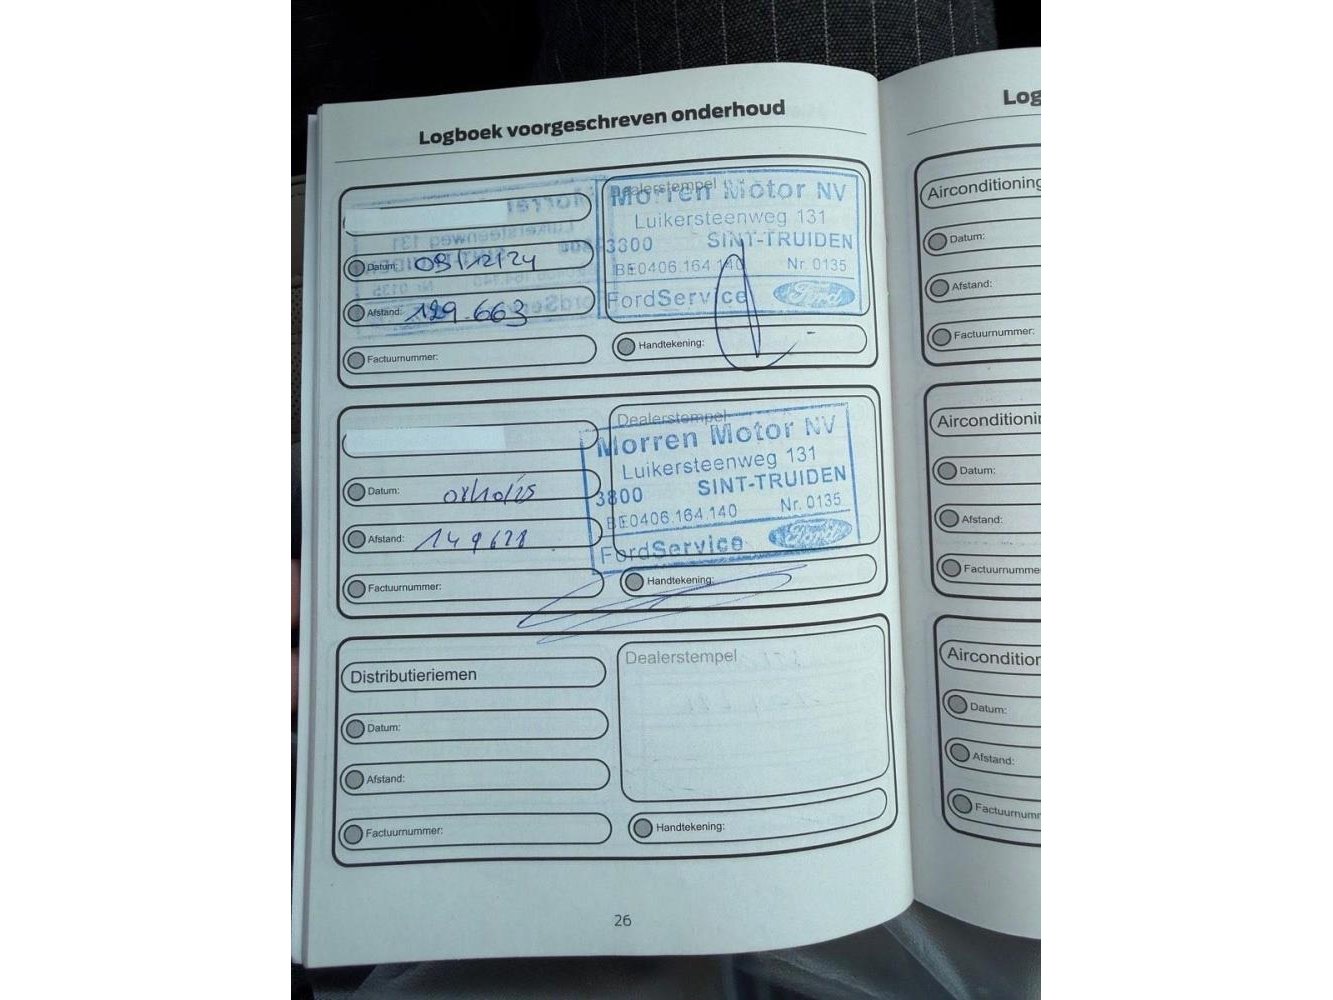 Logboek voorgeschreven onderhoud
Dealerstempel
Morren Motor NV
Luikersteenweg 131
3800 SINT-TRUIDEN
BE0406.164.140 Nr. 0135
FordService Ford
Datum: 03/12/24
Afstand: 129.663
Factuurnummer:
Handtekening:
Dealerstempel
Morren Motor NV
Luikersteenweg 131
3800 SINT-TRUIDEN
BE0406.164.140 Nr. 0135
FordService Ford
Datum: 08/10/25
Afstand: 149628
Factuurnummer:
Handtekening:
Distributieriemen
Dealerstempel
Datum:
Afstand:
Factuurnummer:
Handtekening:
26
Log
Airconditioning
Datum:
Afstand:
Factuurnummer:
Airconditionin
Datum:
Afstand:
Factuurnumme
Airconditior
Datum:
Afstand:
Factuurnumm